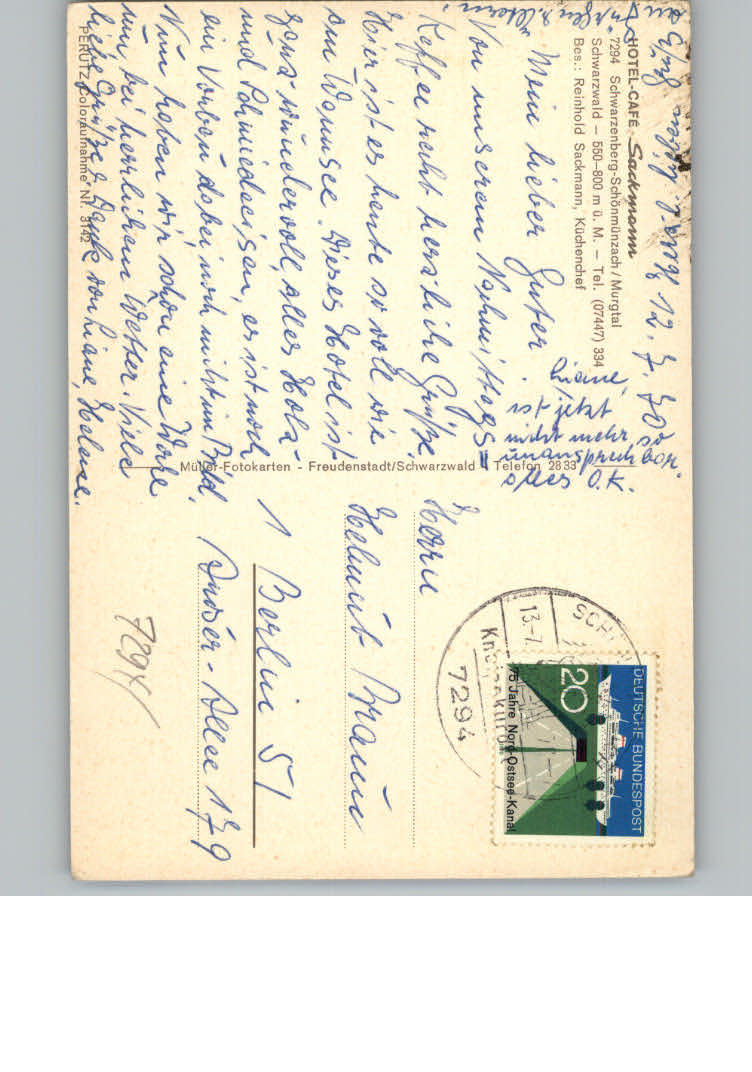 HOTEL-CAFÉ Sackmann
7294 Schwarzenberg-Schönmünzach/Murgtal
Schwarzwald – 550-800 m ü. M. – Tel. (07447) 334
Bes.: Reinhold Sackmann, Küchenchef
12. 7. 70
Mein lieber Guter.
Von unserem Nachmittags=
Kaffee recht herzliche Grüße.
Hier ist es heute so voll wie
am Wannsee. Dieses Hotel ist
ganz wundervoll, alles Holz-
und Schmiedeeisen, es ist noch
ein Vorbau dabei, noch nicht im Bild.
Nun haben wir schon eine Woche
um, bei herrlichen Wetter. Viele
liebe Grüße & Dank von Liane, Helene.
Liane,
ist jetzt
nicht mehr, so
unansprechbar.
alles O.K.
PERUTZ Coloraufnahme Nr. 3142
Müller-Fotokarten - Freudenstadt/Schwarzwald - Telefon 2833
Herrn
Helmut Braun
1 Berlin 51
Allee 179
7294
SCH
13.-7.
7294
DEUTSCHE BUNDESPOST
20
75 Jahre Nord-Ostsee-Kanal